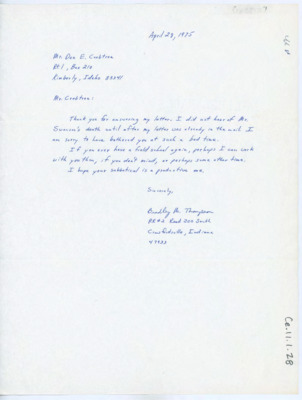 April 23, 1975
Mr. Don E. Crabtree
Rt. 1, Box 210
Kimberly, Idaho 83341
Mr. Crabtree:
Thank you for answering my letter. I did not hear of Mr.
Swanson's death until after my letter was already in the mail. I
am sorry to have bothered you at such a bad time.
If you ever have a field school again, perhaps I can work
with you then, if you don't mind, or perhaps some other time.
I hope your sabbatical is a productive one.
Sincerely,
Bradley M. Thompson
RR#2 Road 200 South
Crawfordsville, Indiana
47933
Co.11.1.28